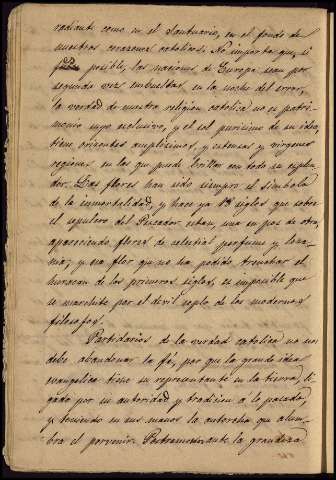 radiante como en el Santuario, en el fondo de
nuestros corazones catolicos. No importa que, si
posible, las naciones de Europa sean por
segunda vez embueltas en la noche del error,
la verdad de nuestra religion catolica no es patri-
monio suyo esclusivo, y el sol purisimo de su idea,
tiene orientes amplisimos, y estensas y virgenes
regiones en las que puede brillar con todo su esplen-
dor. Las flores han sido siempre el simbolo
de la inmortalidad, y hace ya 18 siglos que sobre
el sepulcro del Pescador estan, una en pos de otra,
apareciendo flores de celestial perfume y loza-
nia; y esa flor que no ha podido tronchar el
huracan de los primeros siglos, es imposible que
se marchite por el devil soplo de los modernos
filosofos.
Partidarios de la verdad catolica no nos
debe abandonar la fé, por que la grande idea
evangelica tiene su representante en la tierra, li-
gado por su autoridad y tradicion a lo pasado,
y teniendo en sus manos la antorcha que alum-
bra el porvenir. Postremonos ante la grandeza